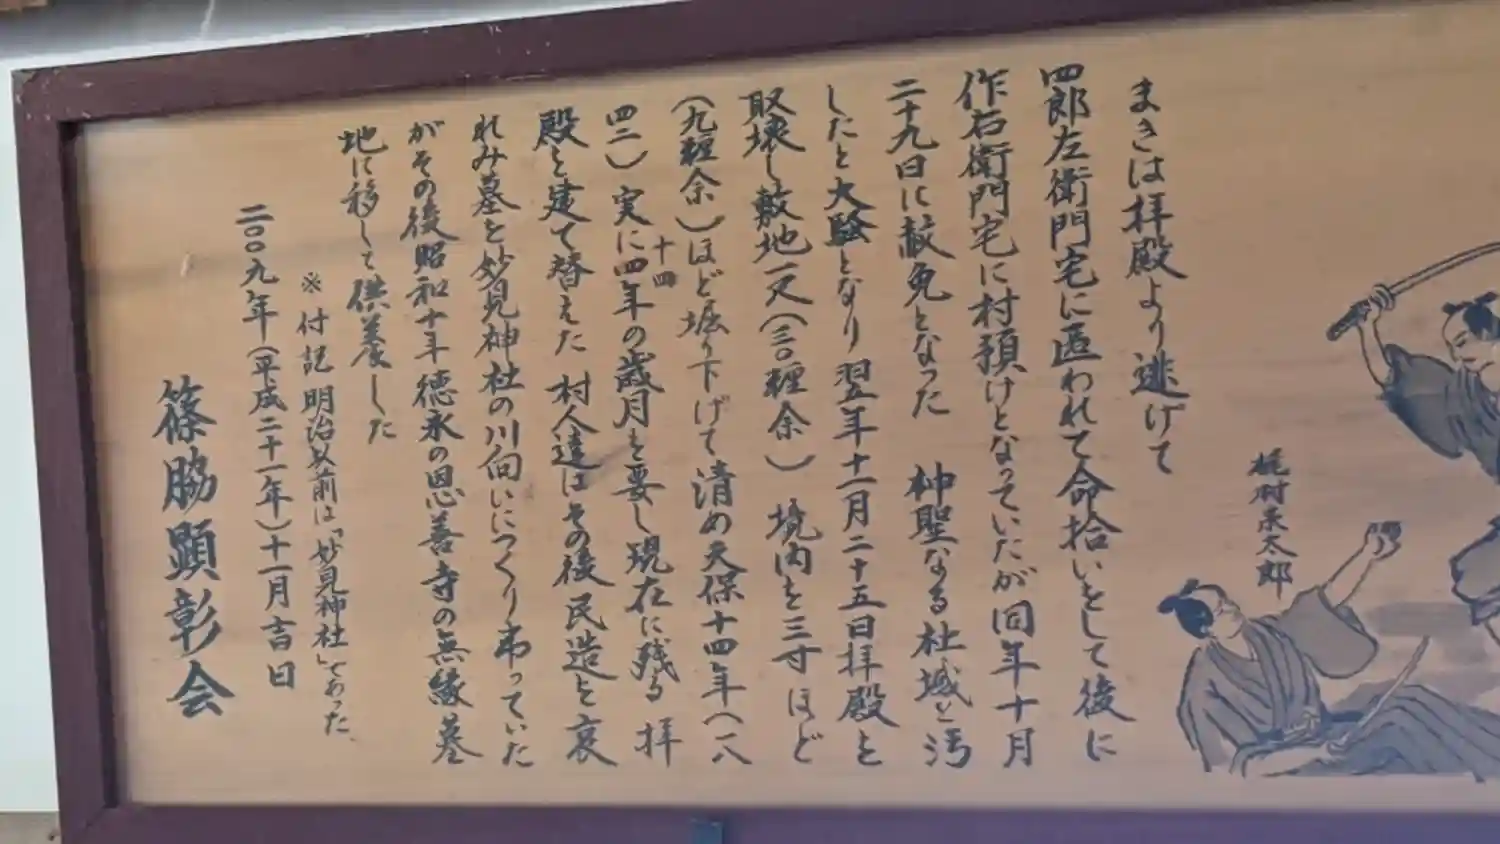 まきは拝殿より逃げて
四郎左衛門宅に匿われて命拾いをして後に
作右衛門宅に村預けとなっていたが同年十月
二十九日に赦免となった 神聖なる社域を汚
したと大騒となり翌五年十一月二十五日拝殿を
取壊し敷地一尺(三〇糎余)境内を三寸ほど
(九糎余)ほど堀り下げて清め天保十四年(一八
四二)実に四年の歳月を要し現在に残る 拝
十四
殿を建て替えた 村人達はその後民造を哀
れみ墓を妙見神社の川向いにつくり弔っていた
がその後昭和十年徳永の恩善寺の無縁墓
地に移して供養した
※ 付記 明治以前は「妙見神社」であった、
二〇〇九年(平成二十一年)十一月吉日
篠脇顕彰会
太郎